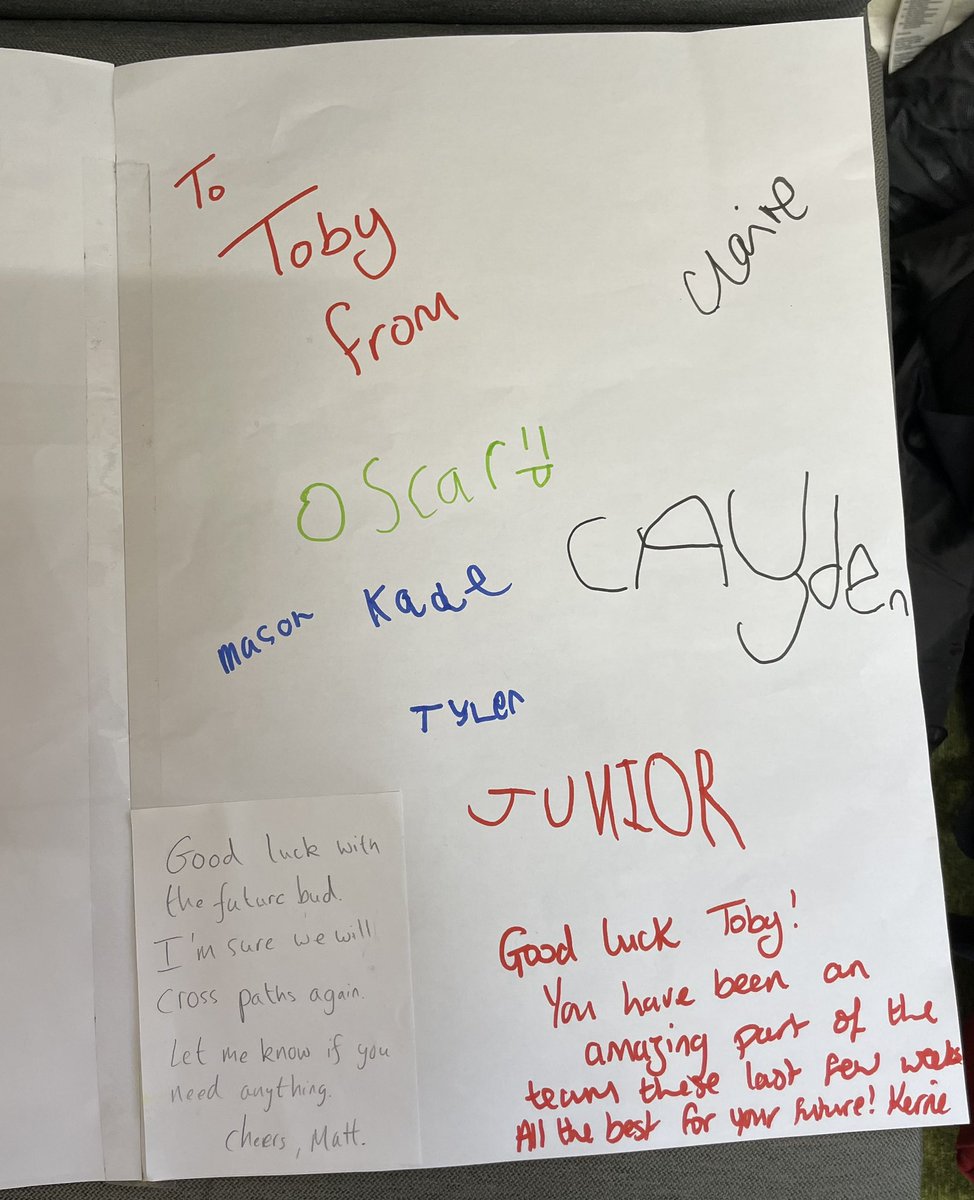 To
Toby
from
Claire
Oscar =D
CAYden
Mason Kade
TYLer
JUNIOR
Good luck with
the future bud.
I'm sure we will
cross paths again.
Let me know if you
need anything.
Cheers, Matt.
Good luck Toby!
You have been an
amazing part of the
team these last few weeks
All the best for your future! Kerrie